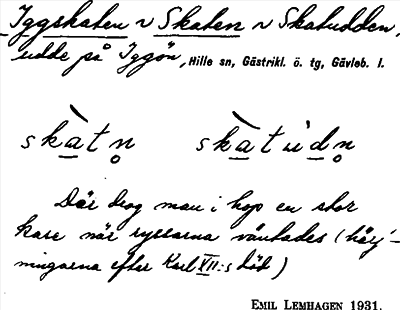 Iggskaten ~ Skaten ~ Skatudden,
udde på Iggön, Hille sn, Gästrikl. ö. tg, Gävleb. l.
skàtn̥ skàtúdn̥
Där drog man i hop en stor
kase när ryssarna väntades (härj-
ningarna efter Karl XII:s död)
EMIL LEMHAGEN 1931.